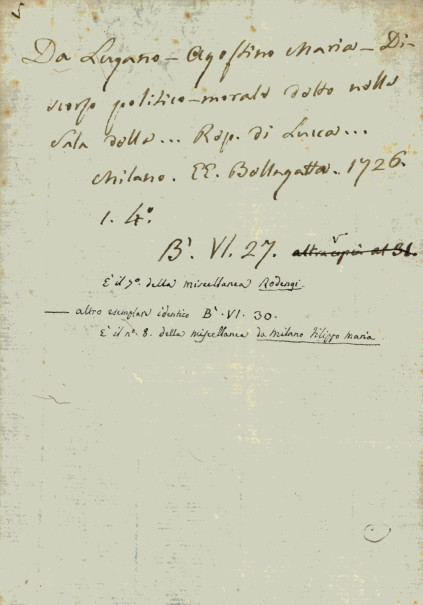 Da Lugano - Agostino Maria - Di-
scorso politico-morale detto nella
Sala della... Rep. di Lucca...
Milano. EE. Bellagatta. 1726.
1. 4°.
B². VI. 27. altra copia al 31.
È il 9°. della miscellanea Rodengi.
— altro esemplare identico B². VI. 30.
È il n°. 8. della miscellanea da Milano Filippo Maria.